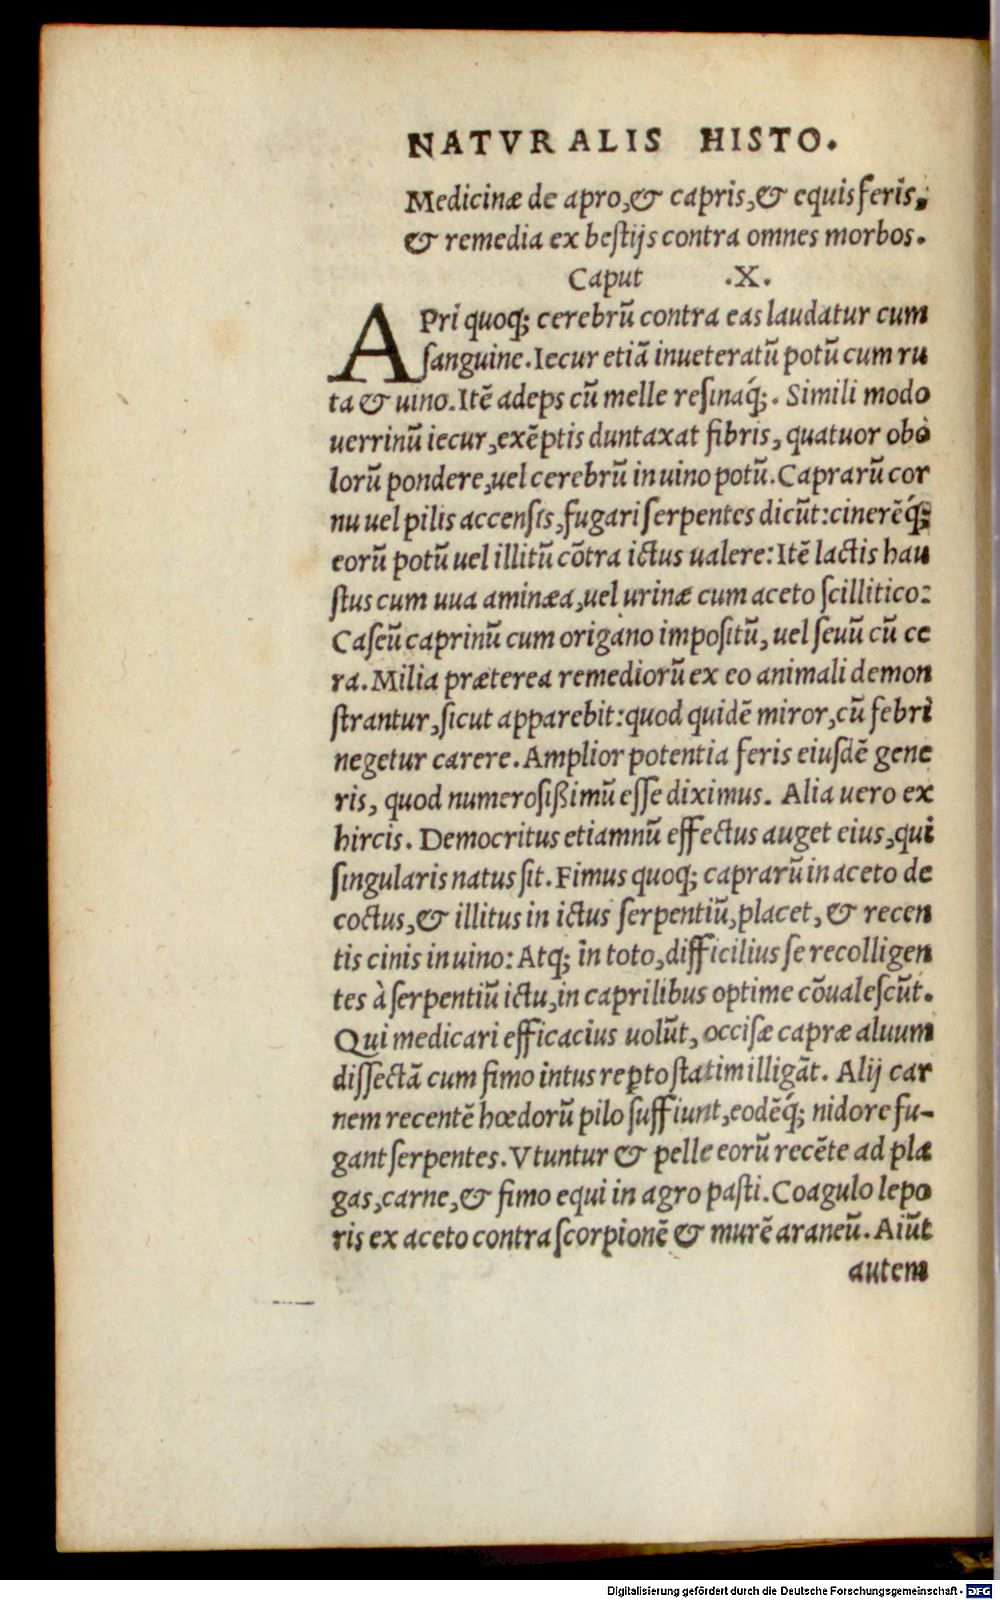 NATVRALIS HISTO.
Medicinæ de apro, & capris, & equis feris,
& remedia ex bestijs contra omnes morbos.
Caput .X.
APri quoq; cerebrū contra eas laudatur cum
sanguine. Iecur etiā inueteratū potū cum ru
ta & uino. Itē adeps cū melle resinaq́;. Simili modo
uerrinū iecur, exēptis duntaxat fibris, quatuor obo
lorū pondere, uel cerebrū in uino potū. Caprarū cor
nu uel pilis accensis, fugari serpentes dicūt: cinerēq́;
eorū potū uel illitū cōtra ictus ualere: Itē lactis hau
stus cum uua aminæa, uel urinæ cum aceto scillitico:
Caseū caprinū cum origano impositū, uel seuū cū ce
ra. Milia præterea remediorū ex eo animali demon
strantur, sicut apparebit: quod quidē miror, cū febri
negetur carere. Amplior potentia feris eiusdē gene
ris, quod numerosißimū esse diximus. Alia uero ex
hircis. Democritus etiamnū effectus auget eius, qui
singularis natus sit. Fimus quoq; caprarū in aceto de
coctus, & illitus in ictus serpentiū, placet, & recen
tis cinis in uino: Atq; in toto, difficilius se recolligen
tes à serpentiū ictu, in caprilibus optime cōualescūt.
Qui medicari efficacius uolūt, occisæ capræ aluum
dissectā cum fimo intus reꝑto statim illigāt. Alij car
nem recentē hœdorū pilo suffiunt, eodēq́; nidore fu-
gant serpentes. Vtuntur & pelle eorū recēte ad pla
gas, carne, & fimo equi in agro pasti. Coagulo lepo
ris ex aceto contra scorpionē & murē araneū. Aiūt
autem
Digitalisierung gefördert durch die Deutsche Forschungsgemeinschaft - DFG